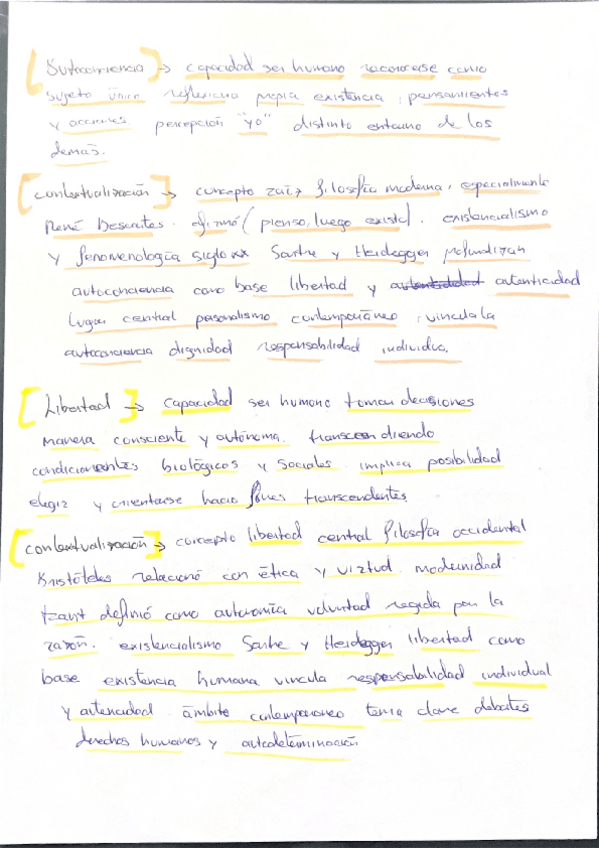 [Autoconciencia] → capacidad ser humano reconocerse como
sujeto único reflexiona propia existencia, pensamientos
y acciones. percepción "yo" distinto entorno de los
demás.
[contextualización → concepto raíz filosofía moderna, especialmente
René Descartes. afirmó (pienso, luego existo). existencialismo
y fenomenología siglo xx Sartre y Heidegger profundizan
autoconciencia como base libertad y autenticidad
lugar central personalismo contemporáneo, vincula la
autoconciencia dignidad responsabilidad individuo.
[Libertad] → capacidad ser humano tomar decisiones
manera consciente y autónoma. transcendiendo
condicionantes biológicos y sociales. implica posibilidad
elegir y orientarse hacia fines transcendentes
[contextualización] → concepto libertad central filosofía occidental
Aristóteles relacionó con ética y virtud. modernidad
Kant definió como autonomía voluntad regida por la
razón. existencialismo Sartre y Heidegger libertad como
base existencia humana vincula responsabilidad individual
y autencidad. ámbito contemporaneo tema clave debates
derechos humanos y autodeterminación